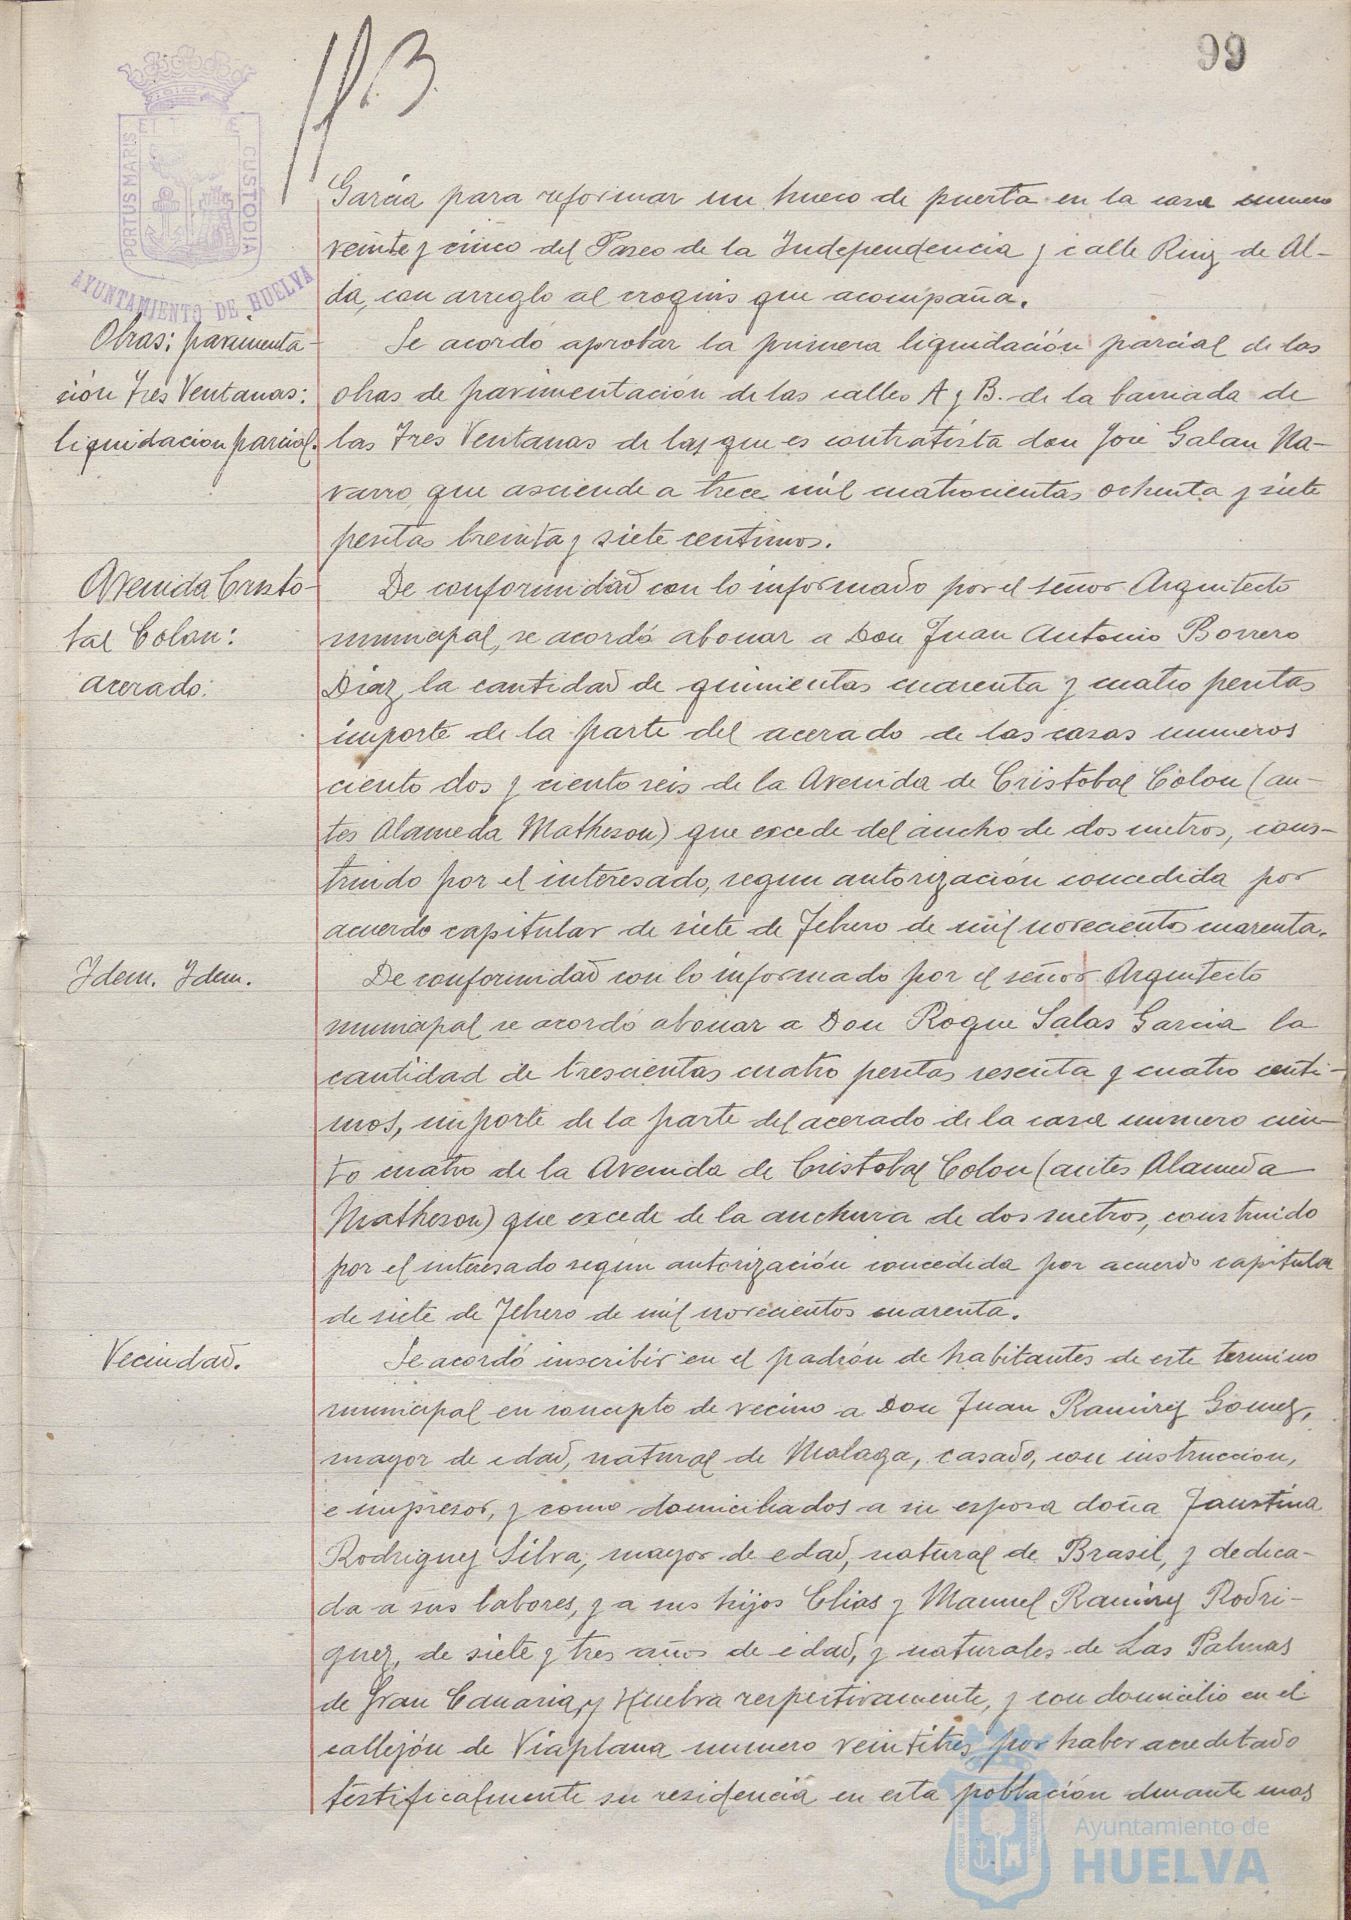 99
PORTUS MARIS
CUSTODIA
AYUNTAMIENTO DE HUELVA
Garcia para reformar un hueco de puerta en la casa numero
veinte y cinco del Paseo de la Independencia y calle Ruiz de Al-
da, con arreglo al croquis que acompaña.
Obras: pavimenta-
ción Tres Ventanas:
liquidacion parcial.
Se acordó aprobar la primera liquidación parcial de las
obras de pavimentación de las calles A y B. de la barriada de
las Tres Ventanas de las que es contratista don José Galan Na-
varro, que asciende a trece mil cuatrocientas ochenta y siete
pesetas treinta y siete centimos.
Avenida Cristo-
bal Colon:
acerado:
De conformidad con lo informado por el señor Arquitecto
municipal, se acordó abonar a Don Juan Antonio Borrero
Diaz, la cantidad de quinientas cuarenta y cuatro pesetas
importe de la parte del acerado de las casas numeros
ciento dos y ciento seis de la Avenida de Cristobal Colon (an-
tes Alameda Matheson) que excede del ancho de dos metros, cons-
truido por el interesado, segun autorización concedida por
acuerdo capitular de siete de Febrero de mil novecientos cuarenta.
Idem. Idem.
De conformidad con lo informado por el señor Arquitecto
municipal se acordó abonar a Don Roque Salas Garcia la
cantidad de trescientas cuatro pesetas sesenta y cuatro centi-
mos, importe de la parte del acerado de la casa numero cien-
to cuatro de la Avenida de Cristobal Colon (antes Alameda
Matheson) que excede de la anchura de dos metros, construido
por el interesado según autorización concedida por acuerdo capitular
de siete de Febrero de mil novecientos cuarenta.
Vecindad.
Se acordó inscribir en el padrón de habitantes de este termino
municipal en concepto de vecino a Don Juan Ramirez Gomez,
mayor de edad, natural de Malaga, casado, con instruccion,
e impresor, y como domiciliados a su esposa doña Faustina
Rodriguez Silva, mayor de edad, natural de Brasil, y dedica-
da a sus labores, y a sus hijos Elias y Manuel Ramirez Rodri-
guez, de siete y tres años de edad, y naturales de Las Palmas
de Gran Canaria, y Huelva respectivamente, y con domicilio en el
callejón de Viaplana numero veintitres por haber acreditado
testificalmente su residencia en esta población durante mas
Ayuntamiento de
HUELVA